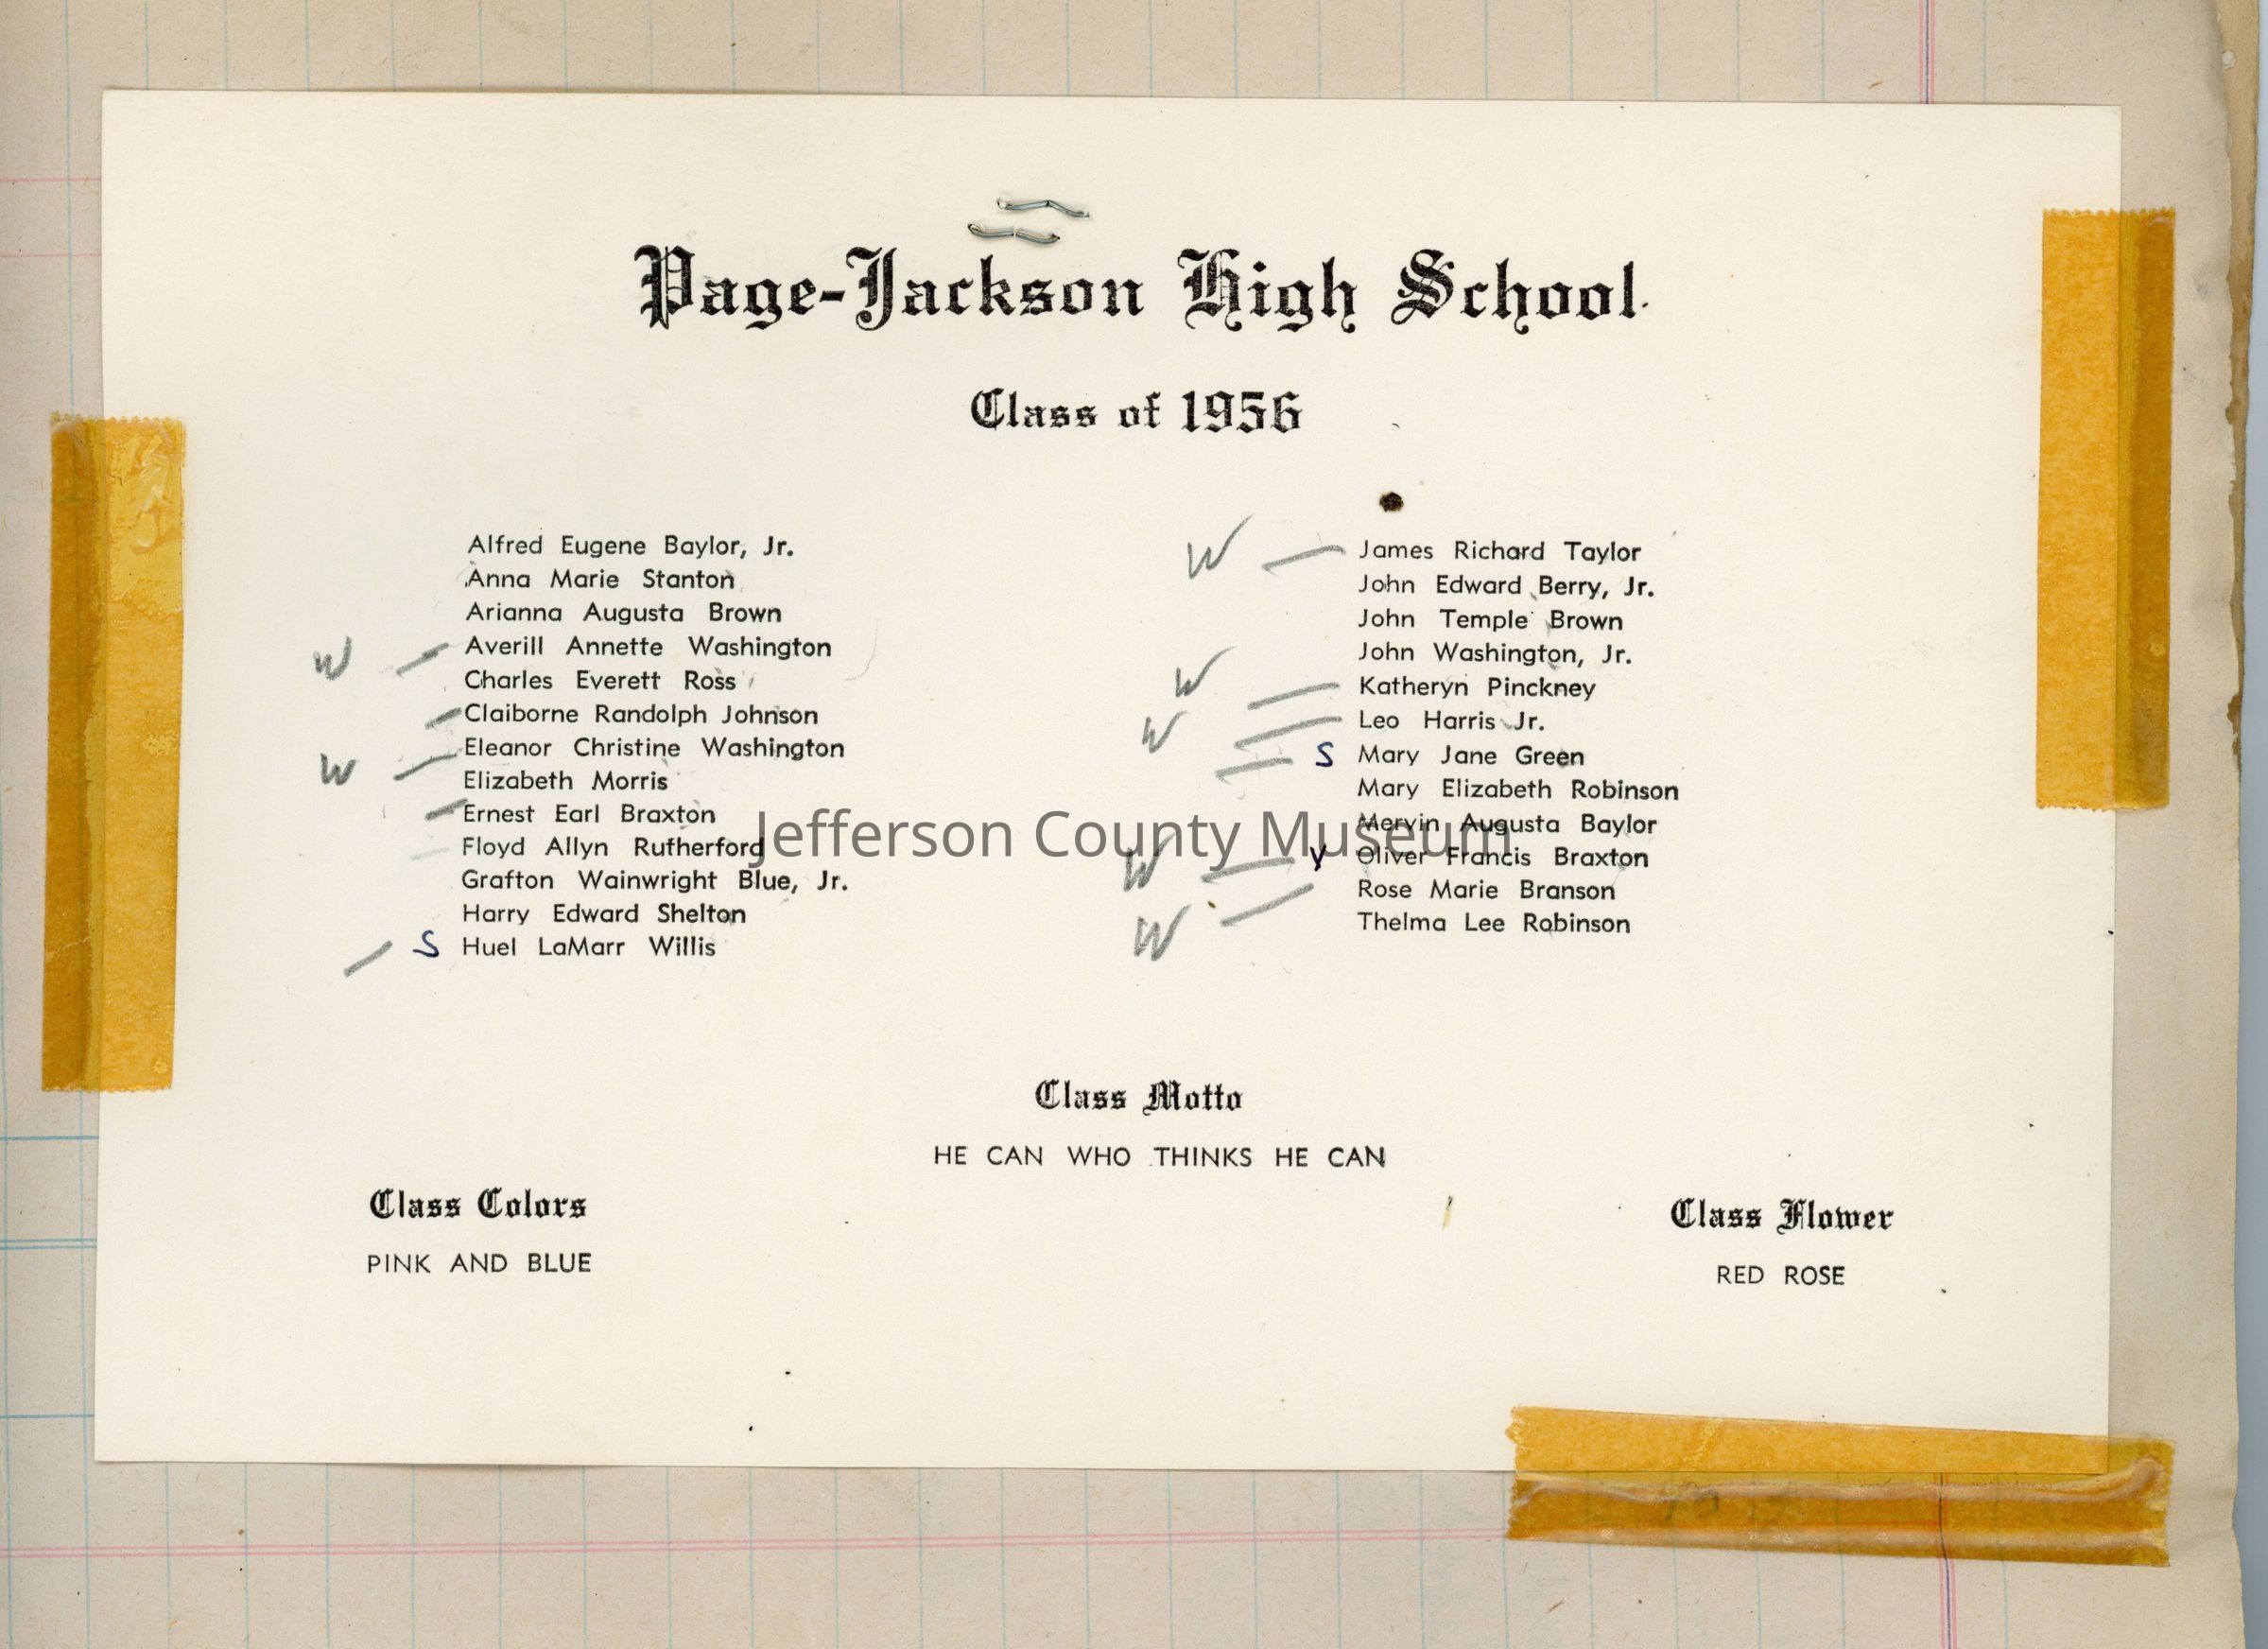 Page-Jackson High School
Class of 1956
Alfred Eugene Baylor, Jr.
Anna Marie Stanton
Arianna Augusta Brown
W Averill Annette Washington
Charles Everett Ross
Claiborne Randolph Johnson
Eleanor Christine Washington
W Elizabeth Morris
Ernest Earl Braxton
Floyd Allyn Rutherford
Grafton Wainwright Blue, Jr.
Harry Edward Shelton
S Huel LaMarr Willis
W James Richard Taylor
John Edward Berry, Jr.
John Temple Brown
John Washington, Jr.
W Katheryn Pinckney
W Leo Harris Jr.
S Mary Jane Green
Mary Elizabeth Robinson
Mervin Augusta Baylor
W Y Oliver Francis Braxton
Rose Marie Branson
W Thelma Lee Robinson
Jefferson County Museum
Class Motto
HE CAN WHO THINKS HE CAN
Class Colors
PINK AND BLUE
Class Flower
RED ROSE